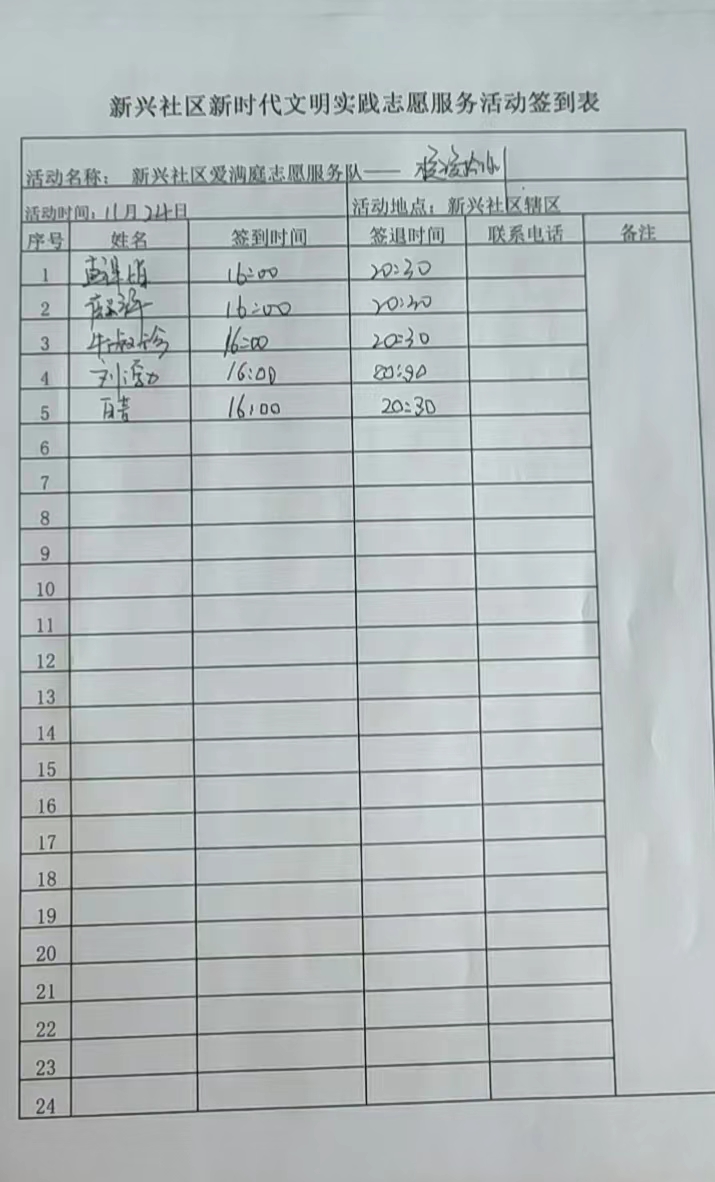 新兴社区新时代文明实践志愿服务活动签到表
活动名称： 新兴社区爱满庭志愿服务队——
活动时间：11月24日 活动地点：新兴社区辖区
序号 姓名 签到时间 签退时间 联系电话 备注
1 16:00 20:30
2 16:00 20:30
3 牛淑珍 16:00 20:30
4 16:00 20:30
5 16:00 20:30
6
7
8
9
10
11
12
13
14
15
16
17
18
19
20
21
22
23
24